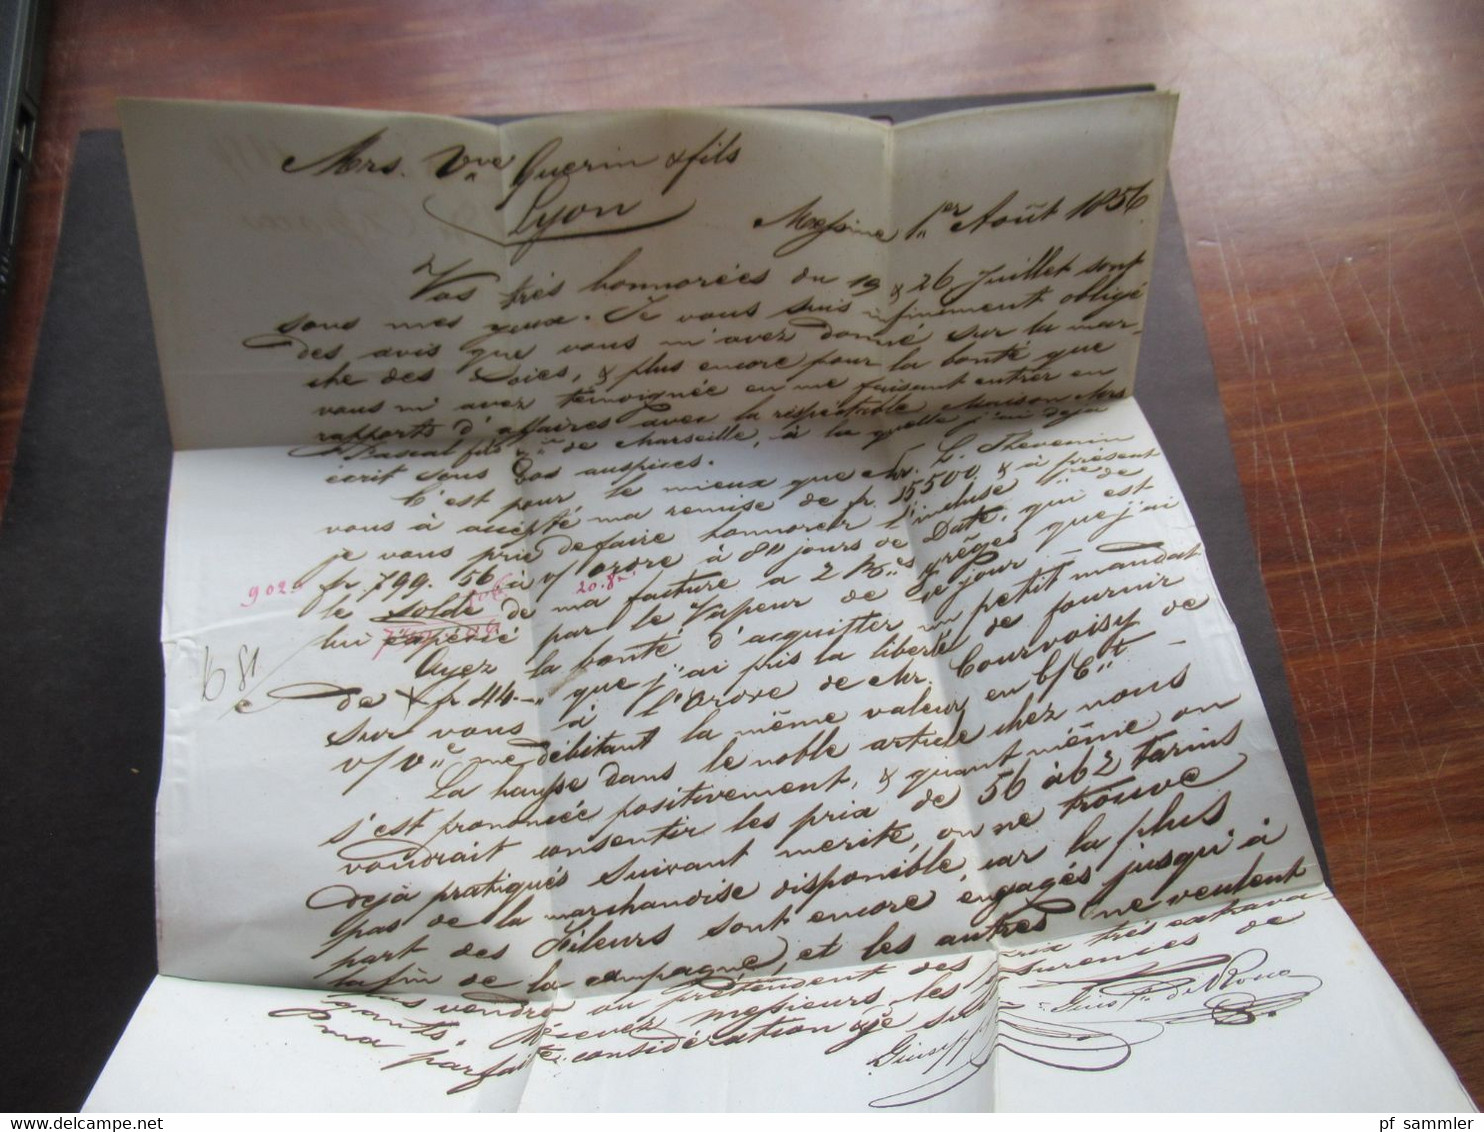 Mrs. Vve Guerin & fils
Lyon
Messine 1er Août 1856
Vos très honnorées du 19 & 26 Juillet sont
sous mes yeux. Je vous suis infiniment obligé
des avis que vous m'avez donné sur la mar-
che des Soies, & plus encore pour la bonté que
vous m'avez témoignée en me faisant entrer en
rapports d'affaires avec la respectable Maison Mrs
Pascal fils de Marseille, à la quelle j'ai deja
écrit sous Vos auspices.
C'est pour le mieux que Mr. L. Thevenin
vous à accépté ma remise de fr. 15500. & à présent
je vous prie de faire honnorer l'incluse de
fr. 799. 56 à v/ ordre à 80 jours de Date, qui est
902 20.8
le solde de ma facture a 2 Bes grèges que j'ai
lui expedié par le Vapeur de ce jour =
Ayez la bonté d'acquitter un petit mandat
b 81
de fr 44- que j'ai pris la liberté de fournir
sur vous à l'Ordre de Mr. Courvoisy de
v/ve me débitant la même valeur en b/Ct -
La hausse dans le noble article chez nous
s'est prononcée positivement, & quant même on
voudrait consentir les prix de 56 à 62 tarins
dejà pratiqués suivant merite, on ne trouve
pas de la marchandise disponible, car la plus
part des fileurs sont encore engagés jusqu'à
la fin de la campagne, et les autres ne veulent
pas vendre ou prétendent des prix très extrava-
gants. Recevez messieurs les assurences de
ma parfaite considération & je suis
Giuseppe
Gius. fu de
pf sammler